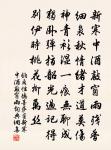 新寒中酒敲窗雨殘香
細裊秋情緒才道莫傷
神青衫濕一痕無聊成
獨臥彈指韶光過記得
別伊時桃花柳萬絲
納蘭性德菩薩蠻新寒
中酒敲窗雨